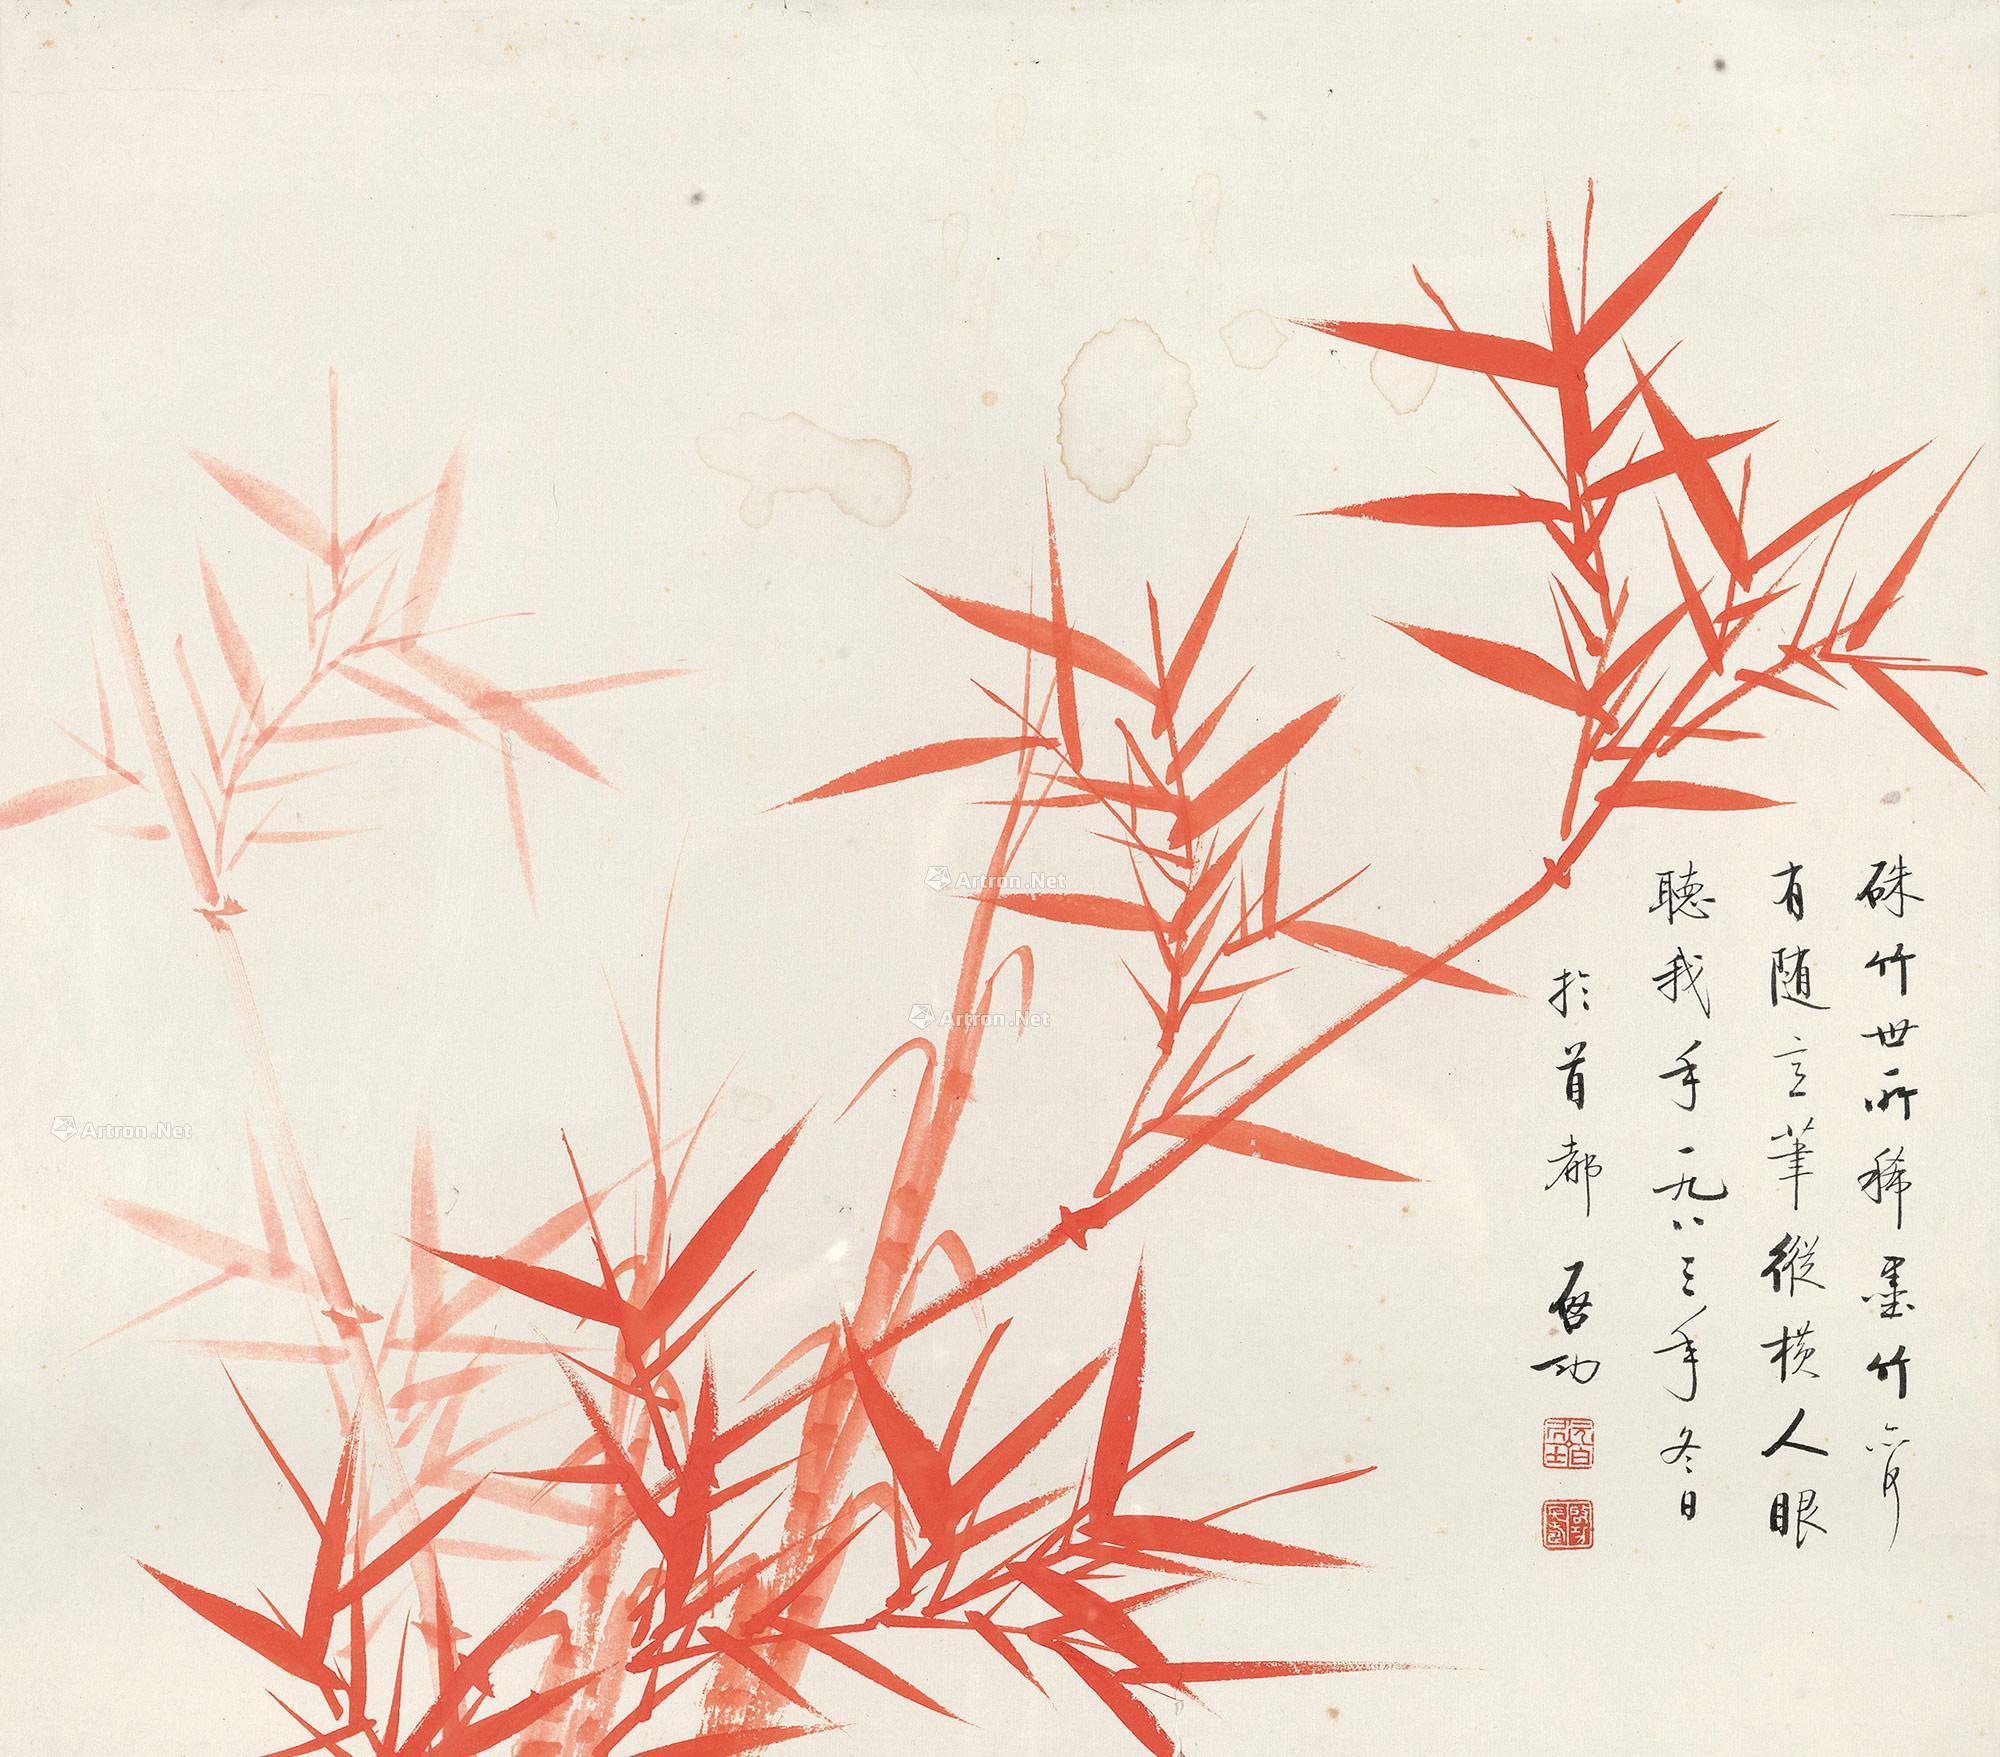 硃竹世所稀墨竹亦何
有随意筆縱橫人眼
聽我手一九八三年冬日
於首都 啓功
元白居士
Artron.Net
Artron.Net
Artron.Net